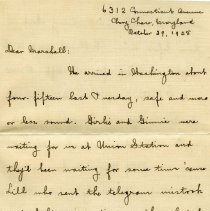 6312 Connecticut Avenue
Chevy Chase, Maryland
October 29, 1928
Dear Marshall:
We arrived in Washington about
four-fifteen last Thursday, safe and more
or less sound. Girlie and Ginnie were
waiting for us at Union Station and
they'd been waiting for some time 'cause
Lill who sent the telegram mistook